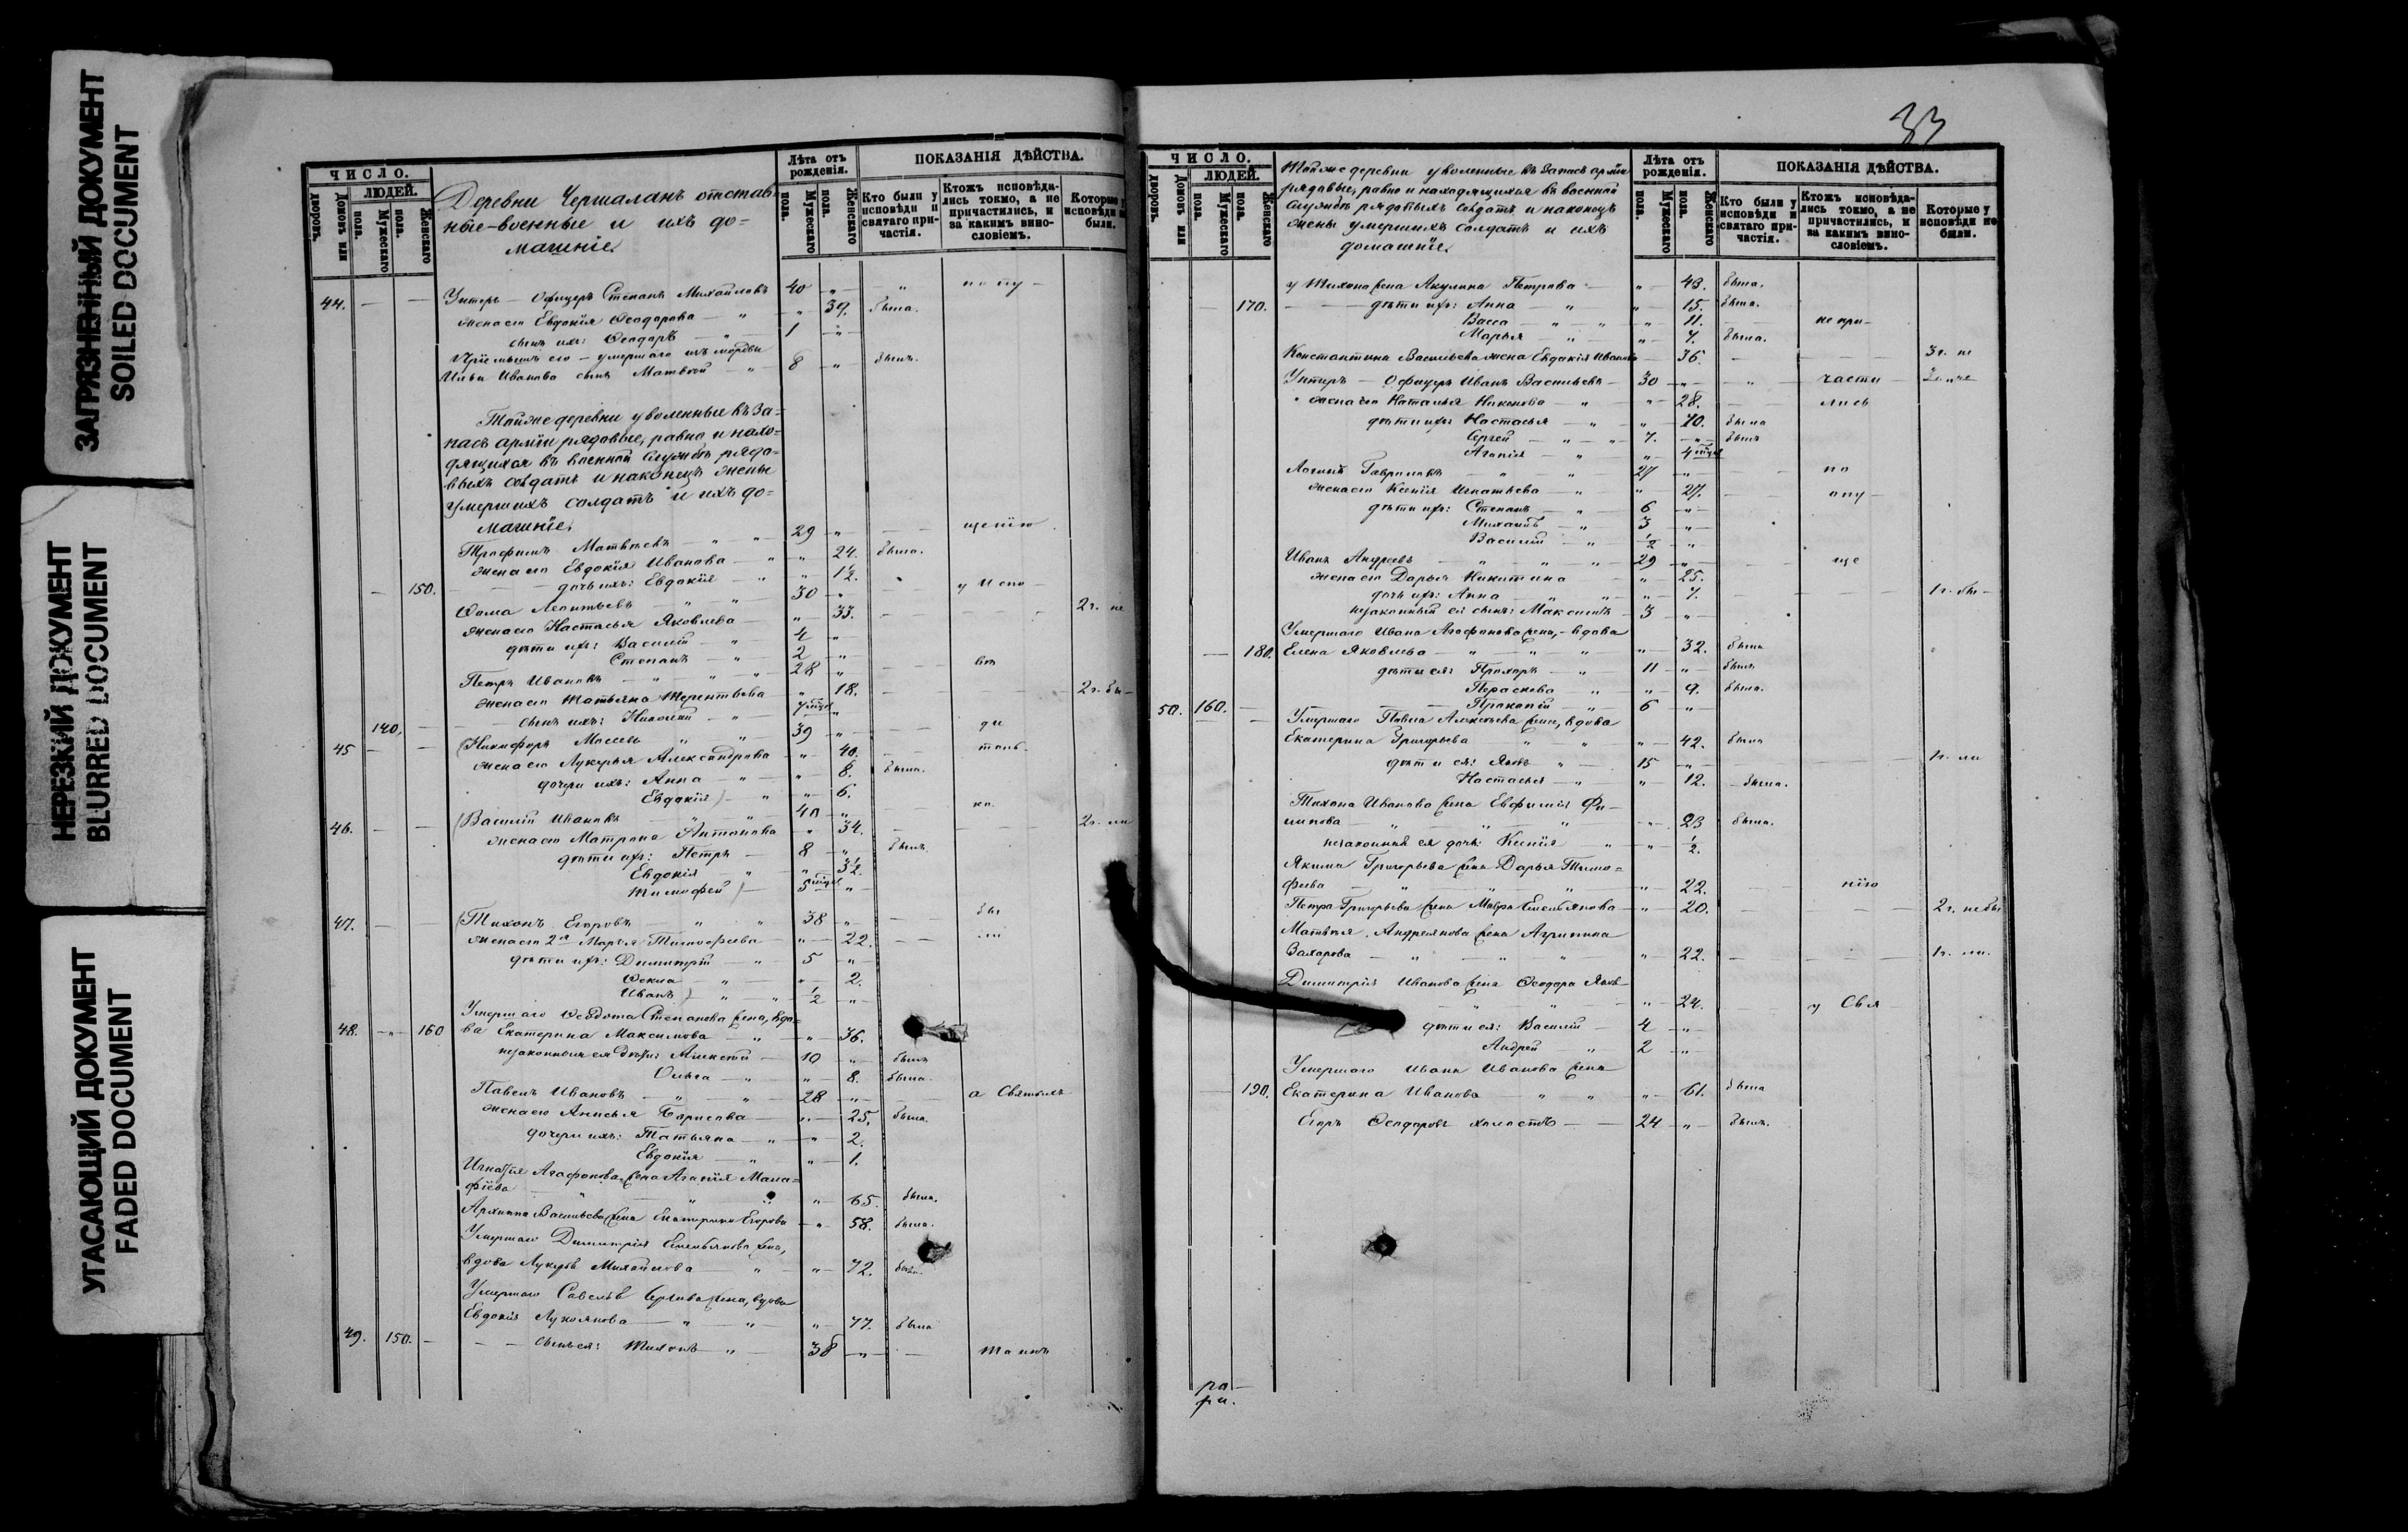 ЗАГРЯЗНЕННЫЙ ДОКУМЕНТ
SOILED DOCUMENT
НЕРЕЗКИЙ ДОКУМЕНТ
BLURRED DOCUMENT
УГАСАЮЩИЙ ДОКУМЕНТ
FADED DOCUMENT
ЧИСЛО.
ЛЮДЕЙ.
Домовъ или дворовъ.
Мужескаго пола.
Женскаго пола.
Деревни Чершаланъ отстав-
ные-военные и ихъ до-
машніе.
Лѣта отъ рожденія.
Мужескаго пола.
Женскаго пола.
ПОКАЗАНІЯ ДѢЙСТВА.
Кто были у исповѣди и святаго при-частія.
Ктожъ исповѣда-лись токмо, а не причастились, и за какимъ вино-словіемъ.
Которые у исповѣди
были.
44. — — Унтеръ-Офицеръ Степанъ Михайловъ 40 " " по пу-
жена его Евдокія Ѳеодорова " 39. была.
сынъ ихъ: Ѳеодоръ 1 "
Пріемышъ его - умершаго изъ мордвы
Ильи Иванова сынъ Матвѣй 8 " былъ.
Тойже деревни уволенные въ За-
пасъ арміи рядовые, равно и нахо-
дящихся въ военной службѣ рядо-
выхъ солдатъ и наконецъ жены
умершихъ солдатъ и ихъ до-
машніе.
Трофимъ Матвѣевъ 29 " щенію
жена его Евдокія Иванова " 24. была.
150. дочь ихъ: Евдокія " 1½.
Ѳома Леонтьевъ 30 " у Испо-
жена его Настасья Яковлева " 33. 2г. не
дѣти ихъ: Василій 4 "
Степанъ 2 "
Петръ Ивановъ 28 " вѣ
жена его Татьяна Терентьева " 18. 2г. бы-
140. сынъ ихъ: Николай 7 мѣс. "
45 Никифоръ Мосеевъ 39 " ди
жена его Лукерья Александрова " 40. токъ.
дочери ихъ: Анна " 8. была.
Евдокія " 6.
46. Василій Ивановъ 40 " но.
жена его Матрона Антонова " 34. 2г. ли
дѣти ихъ: Петръ 8 " былъ.
Евдокія " 3½.
Тимофей 5 мѣс. "
47. Тихонъ Егоровъ 38 " бы
жена его 2я Марья Тимофеева " 22. ли
дѣти ихъ: Димитрій 5 "
Ѳекла " 2.
Иванъ ½ "
Умершаго Ѳедота Степанова жена, вдо-
48. " 160 ва Екатерина Максимова " 36.
незаконныя ея дѣти: Алексѣй 10 " былъ
Ольга " 8. была.
Павелъ Ивановъ 28 " а Святыхъ
жена его Анисья Борисова " 25. была.
дочери ихъ: Татьяна " 2.
Евдокія " 1.
Игнатія Агафонова жена Агапія Мала-
фіева " 65. была.
Архиппа Васильева жена Екатерина Егорова " 58. была.
Умершаго Димитрія Емельянова жена,
вдова Лукерья Михайлова " 72. была.
Умершаго Савелья Сергева жена, вдова
Евдокія Лукоянова " 77. была
49. 150. сынъ ея: Тихонъ 38 " Таинъ
33
ЧИСЛО.
ЛЮДЕЙ.
Домовъ или дворовъ.
Мужескаго пола.
Женскаго пола.
Тойже деревни уволенные въ Запасъ арміи
рядовые, равно и находящихся въ военной
службѣ рядовыхъ солдатъ и наконецъ
жены умершихъ солдатъ и ихъ
домашніе.
Лѣта отъ рожденія.
Мужескаго пола.
Женскаго пола.
ПОКАЗАНІЯ ДѢЙСТВА.
Кто были у исповѣди и святаго при-частія.
Ктожъ исповѣда-лись токмо, а не причастились, и за какимъ вино-словіемъ.
Которые у исповѣди не были.
у Тихона жена Акулина Петрова " 43. была.
170. дѣти ихъ: Анна " 15. была.
Васса " 11. не при-
Марья " 7. была.
Константина Васильева жена Евдокія Иванова 36. 3г. не
Унтеръ-Офицеръ Иванъ Васильевъ 30 " " части
жена его Наталья Никонова " 28. лись
дѣти ихъ: Настасья " 10. была
Сергей 7. " былъ
Агапія " 4 мѣс.
Логинъ Гавриловъ 27 " по
жена его Ксенія Игнатьева " 27. опу-
дѣти ихъ: Степанъ 6 "
Михаилъ 3 "
Василій ½ "
Иванъ Андреевъ 29 " ще
жена его Дарья Никитина " 25.
дочь ихъ: Анна " 7. 1г. бы-
незаконный ея сынъ: Максимъ 3 "
Умершаго Ивана Агафонова жена,-вдова
180. Елена Яковлева " 32. была
дѣти ея: Прохоръ 11 " былъ
Параскева " 9. была.
50. 160. Прокопій 6 "
Умершаго Павла Алексеева жена, вдова
Екатерина Григорьева " 42. была
дѣти ея: Яковъ 15 " 1г. ли
Настасья " 12. была.
Тихона Иванова жена Евфимія Фи-
липова " 23 была.
незаконная ея дочь: Ксенія " ½.
Якима Григорьева жена Дарья Тимо-
феева " 22. нію
Петра Григорьева жена Мавра Емельянова " 20. 2г. не бы
Матвѣя Андреянова жена Агрипина
Захарова " 22. 1г. ли.
Димитрія Иванова жена Ѳеодора Яков-
" 24. у Свя
дѣти ея: Василій 4 "
Андрей 2 "
Умершаго Ивана Иванова жена
190. Екатерина Иванова " 61. была
Егоръ Ѳеодоровъ холостъ 24 " былъ.